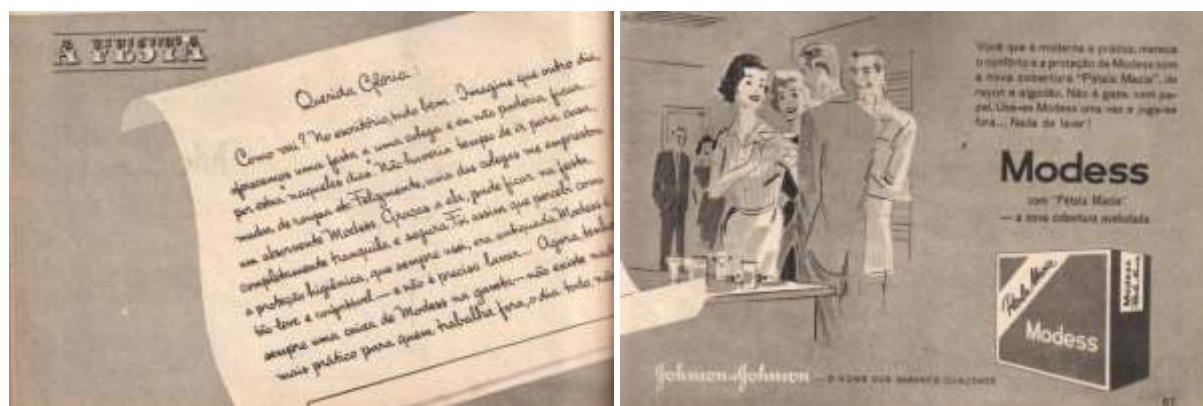 A FESTA
Querida Glória!
Como vai? No escritório, tudo bem. Imagine que outro dia
oferecemos uma festa a uma colega e eu não poderia ficar
por estar "naqueles dias". Não haveria tempo de ir para casa,
mudar de roupa etc. Felizmente, uma das colegas me emprestou
um absorvente Modess. Graças a ele, pude ficar na festa
completamente tranquila e segura. Foi assim que percebi como
a proteção higiênica, que sempre usei, era antiquada. Modess é
tão leve e confortável — e não é preciso lavar... Agora tenho
sempre uma caixa de Modess na gaveta — não existe nada
mais prático para quem trabalha fora, o dia todo, não
Você que é moderna e prática, merece
o confôrto e a proteção de Modess com
a nova cobertura "Pétala Macia", de
rayon e algodão. Não é gaze, nem pa-
pel. Usa-se Modess uma vez e joga-se
fora... Nada de lavar!
Modess
com "Pétala Macia"
— a nova cobertura aveludada
Pétala Macia
Modess
Modess
Johnson & Johnson — O NOME QUE GARANTE QUALIDADE
87